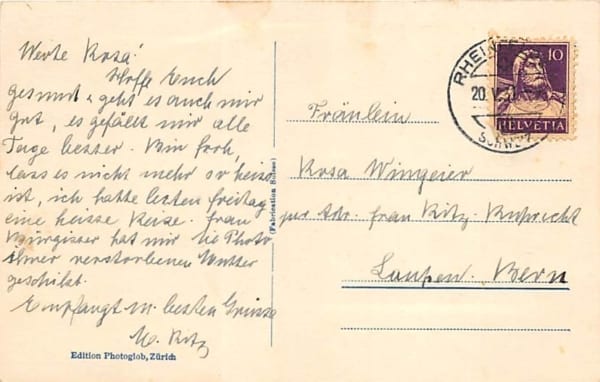 Werte Rosa!
Hoffe Euch
gesund, geht es auch mir
gut, es gefällt mir alle
Tage besser. Bin froh,
dass es nicht mehr so heiss
ist, ich hatte letzten Freitag
eine heisse Reise. Frau
hat mir die Photo
ihrer verstorbenen Mutter
geschikt.
Empfangt m. besten Grüsse
M. Ritz
Edition Photoglob, Zürich
(Fabrication Suisse)
RHEIN
20. V
SCHWEIZ
10
HELVETIA
Fräulein
Rosa Wingeier
zur Adr. Frau Ritz-Ruprecht
Laupen. Bern